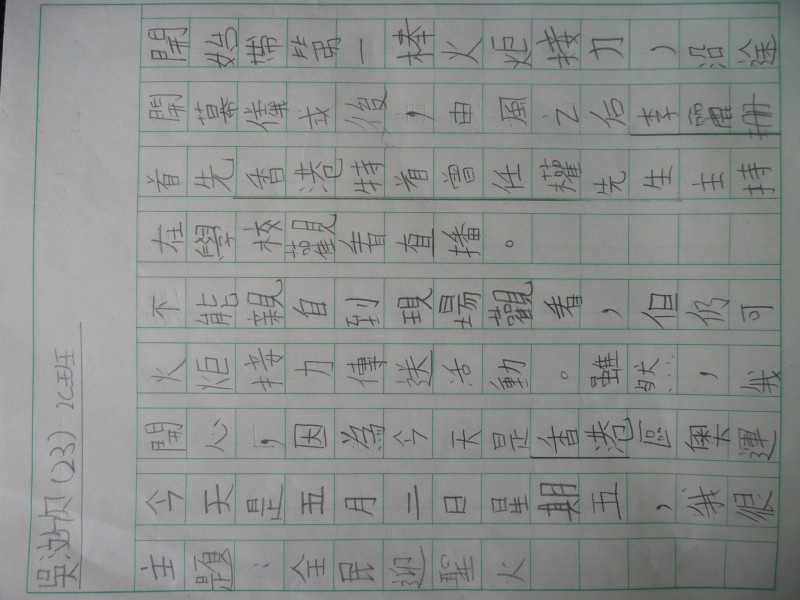 吳 (23) 2C班
主題：全民迎聖火
今天是五月二日星期五，我很
開心，因為今天是香港區奧運
火炬接力傳送活動。雖然，我
不能親自到現場觀看，但仍可
在學校觀看直播。
首先香港特首曾任權先生主持
開幕儀式後，由風之后李麗珊
開始帶第一棒火炬接力，沿途